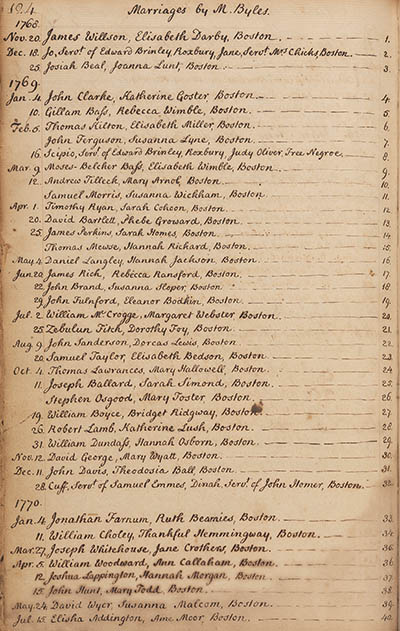 124. Marriages by M. Byles.
1768.
Nov. 20. James Willson, Elisabeth Darby, Boston. 1.
Dec. 18. Jo, Servt. of Edward Brinley Roxbury, Jane, Servt. Mrs. Chicks, Boston. 2.
25. Josiah Beal, Joanna Lunt, Boston. 3.
1769.
Jan. 4. John Clarke, Katherine Goster, Boston. 4.
10. Gillam Bass, Rebecca Wimble, Boston. 5.
Feb. 5. Thomas Hilton, Elisabeth Miller, Boston. 6.
John Ferguson, Susanna Lyne, Boston. 7.
16. Scipio, Servt. of Edward Brinley Roxbury, Judy Oliver, Free Negroe. 8.
Mar. 9. Moses-Belcher Bass, Elisabeth Wimble, Boston. 9.
12. Andrew Tilleck, Mary Arnol, Boston. 10.
Samuel Morris, Susanna Wickham, Boston. 11.
Apr. 1. Timothy Ryan, Sarah Cohoon, Boston. 12.
20. David Bartlett, Phebe Groward, Boston. 13.
25. James Perkins, Sarah Homes, Boston. 14.
Thomas Mewse, Hannah Richard, Boston. 15.
May. 4. Daniel Langley, Hannah Jackson, Boston. 16.
Jun. 20. James Rich, Rebecca Ransford, Boston. 17.
22. John Brand, Susanna Sloper, Boston. 18.
29. John Fulnford, Eleanor Bodkin, Boston. 19.
Jul. 2. William McCrogge, Margaret Webster, Boston. 20.
25. Zebulun Fitch, Dorothy Foy, Boston. 21.
Aug. 9. John Sanderson, Dorcas Lewis, Boston. 22.
20. Samuel Taylor, Elisabeth Bedson, Boston. 23.
Oct. 4. Thomas Lawrances, Mary Hallowell, Boston. 24.
11. Joseph Ballard, Sarah Simond, Boston. 25.
Stephen Osgood, Mary Foster, Boston. 26.
19. William Boyce, Bridget Ridgway, Boston. 27.
26. Robert Lamb, Katherine Lush, Boston. 28.
31. William Dundass, Hannah Osborn, Boston. 29.
Nov. 12. David George, Mary Wyatt, Boston. 30.
Dec. 11. John Davis, Theodosia Ball, Boston. 31.
28. Cuff, Servt. of Samuel Emmes, Dinah, Servt. of John Homer, Boston. 32.
1770.
Jan. 4. Jonathan Farnum, Ruth Beamies, Boston. 33.
11. William Choley, Thankful Hemmingway, Boston. 34.
Mar. 27. Joseph Whitehouse, Jane Crothers, Boston. 35.
Apr. 5. William Woodward, Ann Callaham, Boston. 36.
12. Joshua Lappington, Hannah Morgan, Boston. 37.
15. John Hunt, Mary Todd, Boston. 38.
May. 24. David Wyer, Susanna Malcom, Boston. 39.
Jul. 15. Elisha Addington, Ame Moor, Boston. 40.